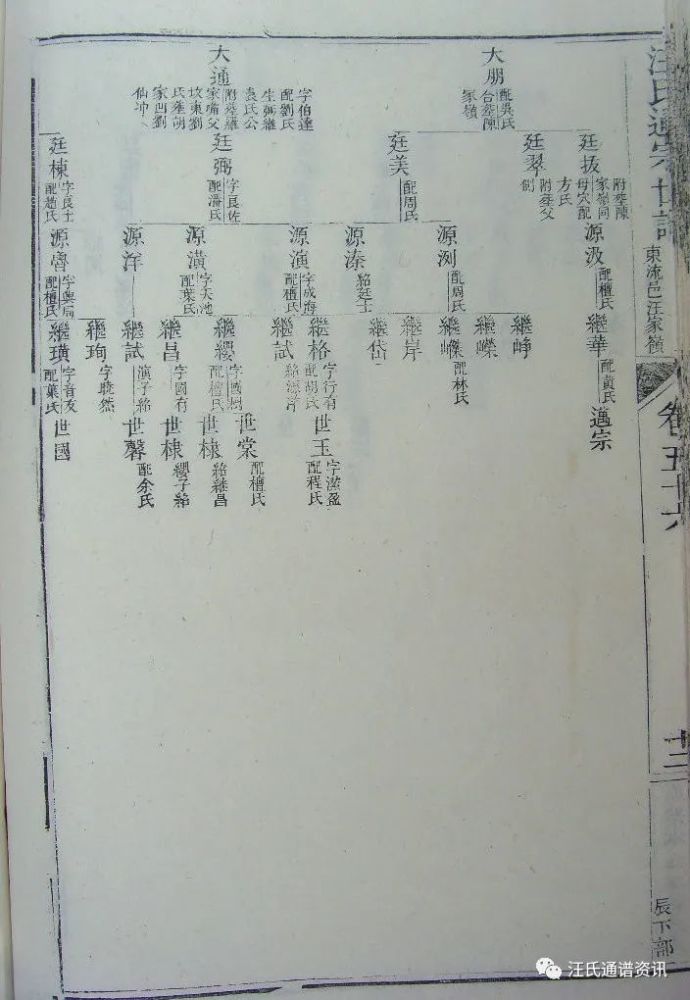 汪氏通宗世譜
東流邑汪家嶺
卷五十六
十二
辰下部
大朋
配吳氏
合葬陳
家嶺
大通
字伯達
配劉氏
生弼繼
袁氏公
附葬羅
家嘴父
坟東劉
氏葬胡
家凹劉
仙冲
廷拔
附葬陳
家嶺同
母穴配
方氏
廷翠
附葬父
側
廷美
配周氏
廷弼
字良佐
配潘氏
廷棟
字良士
配趙氏
源汲
配檀氏
源洌
配周氏
源溱
紹廷士
源演
字成海
配檀氏
源潢
字天池
配葉氏
源洋
源魯
字興周
配檀氏
繼華
配黃氏
繼崢
繼嶸
繼嶫
配林氏
繼岸
繼岱
繼格
字行有
配胡氏
繼試
紹源洋
繼纓
字國樹
配檀氏
繼昌
字國有
繼試
演子紹
繼珣
字曉然
繼璜
字音友
配葉氏
邁宗
世玉
字滋盈
配程氏
世棠
配檀氏
世棣
紹繼昌
世棣
纓子紹
世馨
配余氏
世國
汪氏通谱资讯